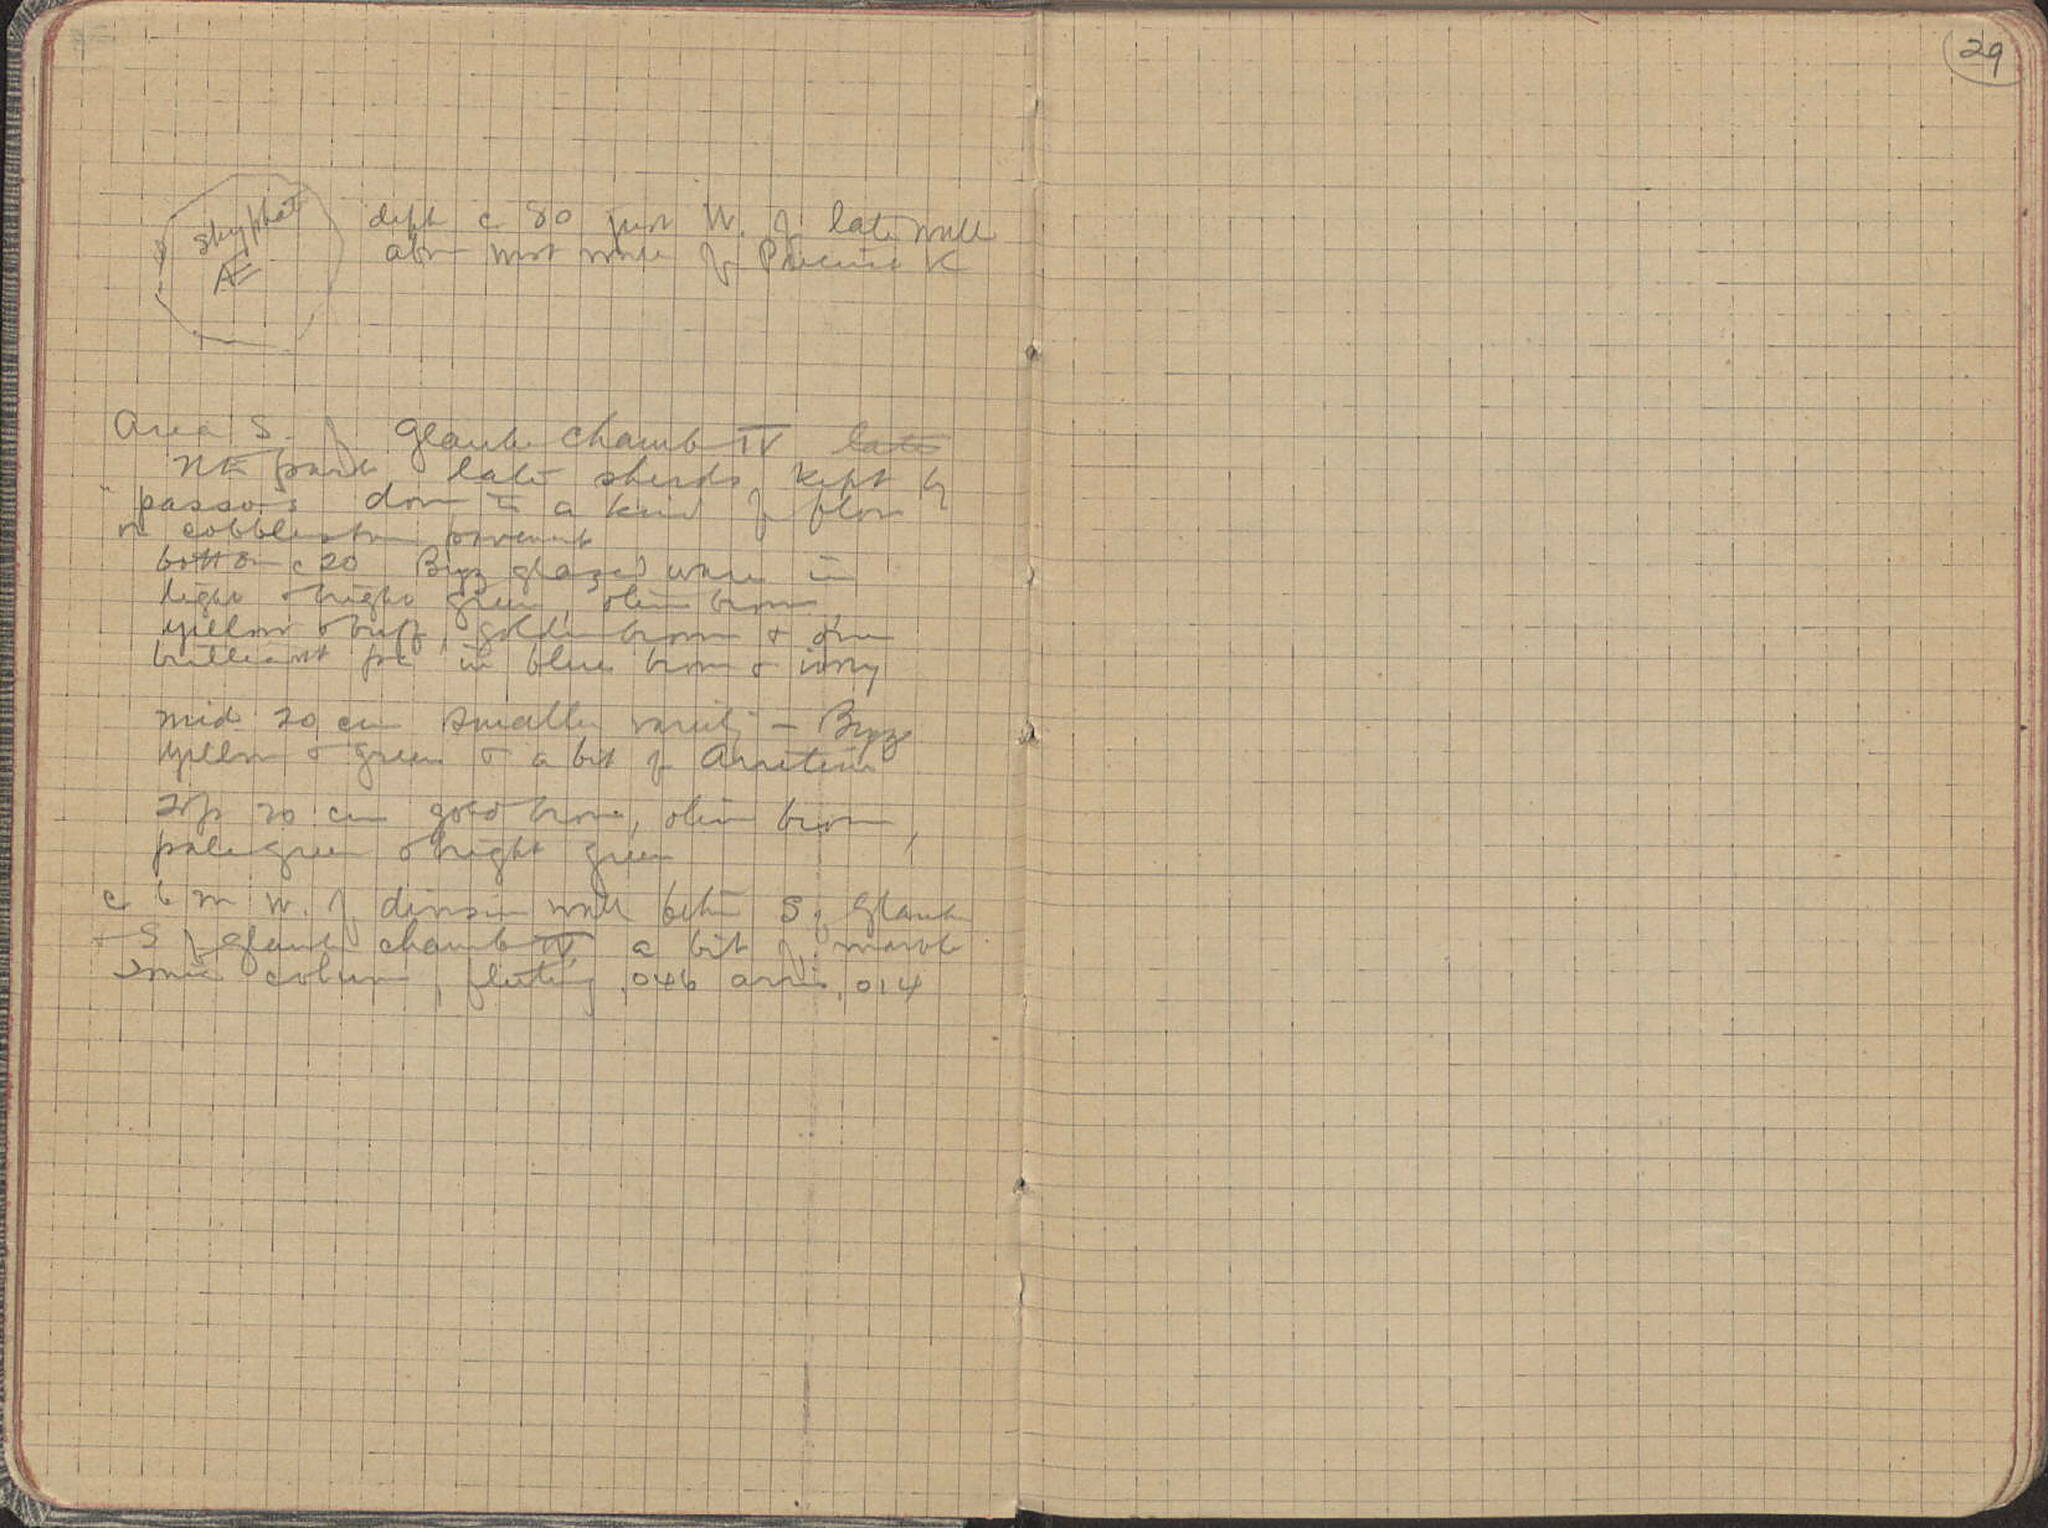 29
skyphat
AE
depth c 80 just W. of late wall
above west wall of Precinct K
Area S. of Glauke chamb IV late
NE part late sherds, kept by
"passo"s down to a kind of floor
or cobblestone pavement
bottom c 20 Byz glazed ware in
light & bright green, olive brown,
yellow & buff, golden brown & one
brilliant pc in blue brown & ivory
mid 20 cm smaller variety – Byz
yellow & green & a bit of Arretine
Top 20 cm gold brown, olive brown,
pale green & bright green
c 6 m W. of division wall betw S of Glauke
& S of Glauke chamb IV, a bit of marble
Ionic column, fluting .046 arris .014